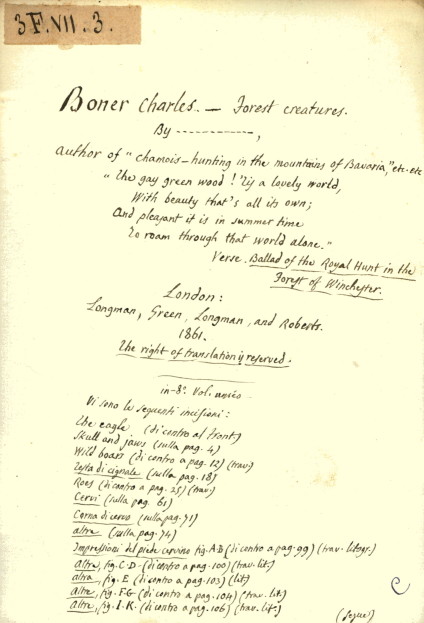 3 F.VII.3.
Boner Charles. — Forest creatures.
By -----------,
Author of "Chamois-hunting in the mountains of Bavaria," etc. etc
"The gay green wood! 'Tis a lovely world,
With beauty that's all its own;
And pleasant it is in summer time
To roam through that world alone."
Verse. Ballad of the Royal Hunt in the
Forest of Winchester.
London:
Longman, Green, Longman, and Roberts.
1861.
The right of translation is reserved.
in-8º. Vol. unico
Vi sono le seguenti incisioni:
the eagle (di contro al front)
Skull and jaws (sulla pag. 4)
Wild boars (di contro a pag. 12) (trav.)
Testa di cignale (sulla pag. 18)
Roes (di contro a pag. 25) (trav.)
Cervi (sulla pag. 61)
Corna di cervo (sulla pag. 71)
altre (sulla pag. 74)
Impressioni del piede cervino fig. A-B (di contro a pag. 99) (trav. litogr.)
Altre, fig. C-D- (di contro a pag. 100) (trav. lit.)
altra, fig. E (di contro a pag. 103) (lit)
Altre, fig. F-G (di contro a pag. 104) (trav. lit.)
Altre, fig. I-K. (di contro a pag. 106) (trav. lit.)
(segue)